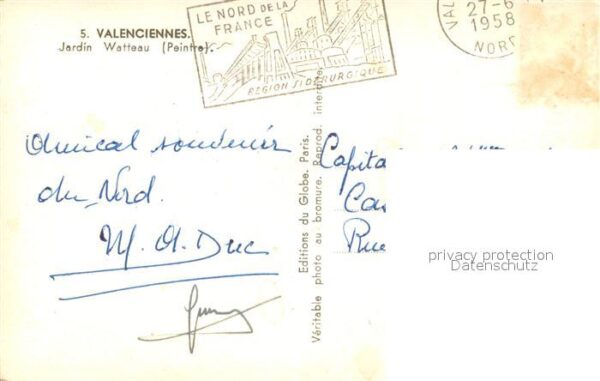 5. VALENCIENNES.
Jardin Watteau (Peintre).
LE NORD DE LA
FRANCE
RÉGION SIDÉRURGIQUE
VAL
27-6
1958
NORD
Amical souvenir
du Nord.
M. A. Duc
Editions du Globe. Paris.
Véritable photo au bromure. Reprod. interdite.
Capita
Cas
Rue
privacy protection
Datenschutz